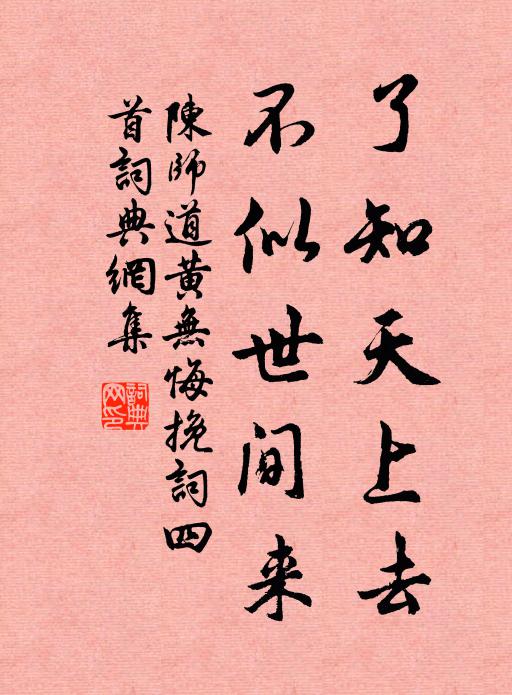 了知天上去
不似世间来
陳師道黃無悔挽詞四
首詞典網集
詞典网印